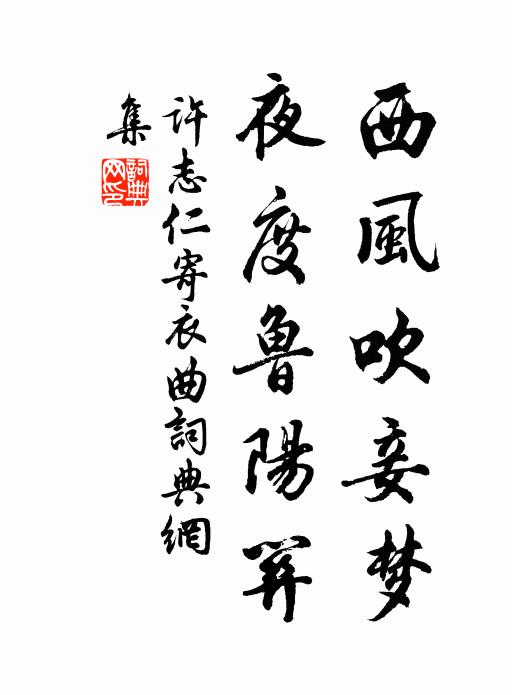 西風吹妾梦
夜度魯陽關
許志仁寄衣曲詞典網
集
詞典網印